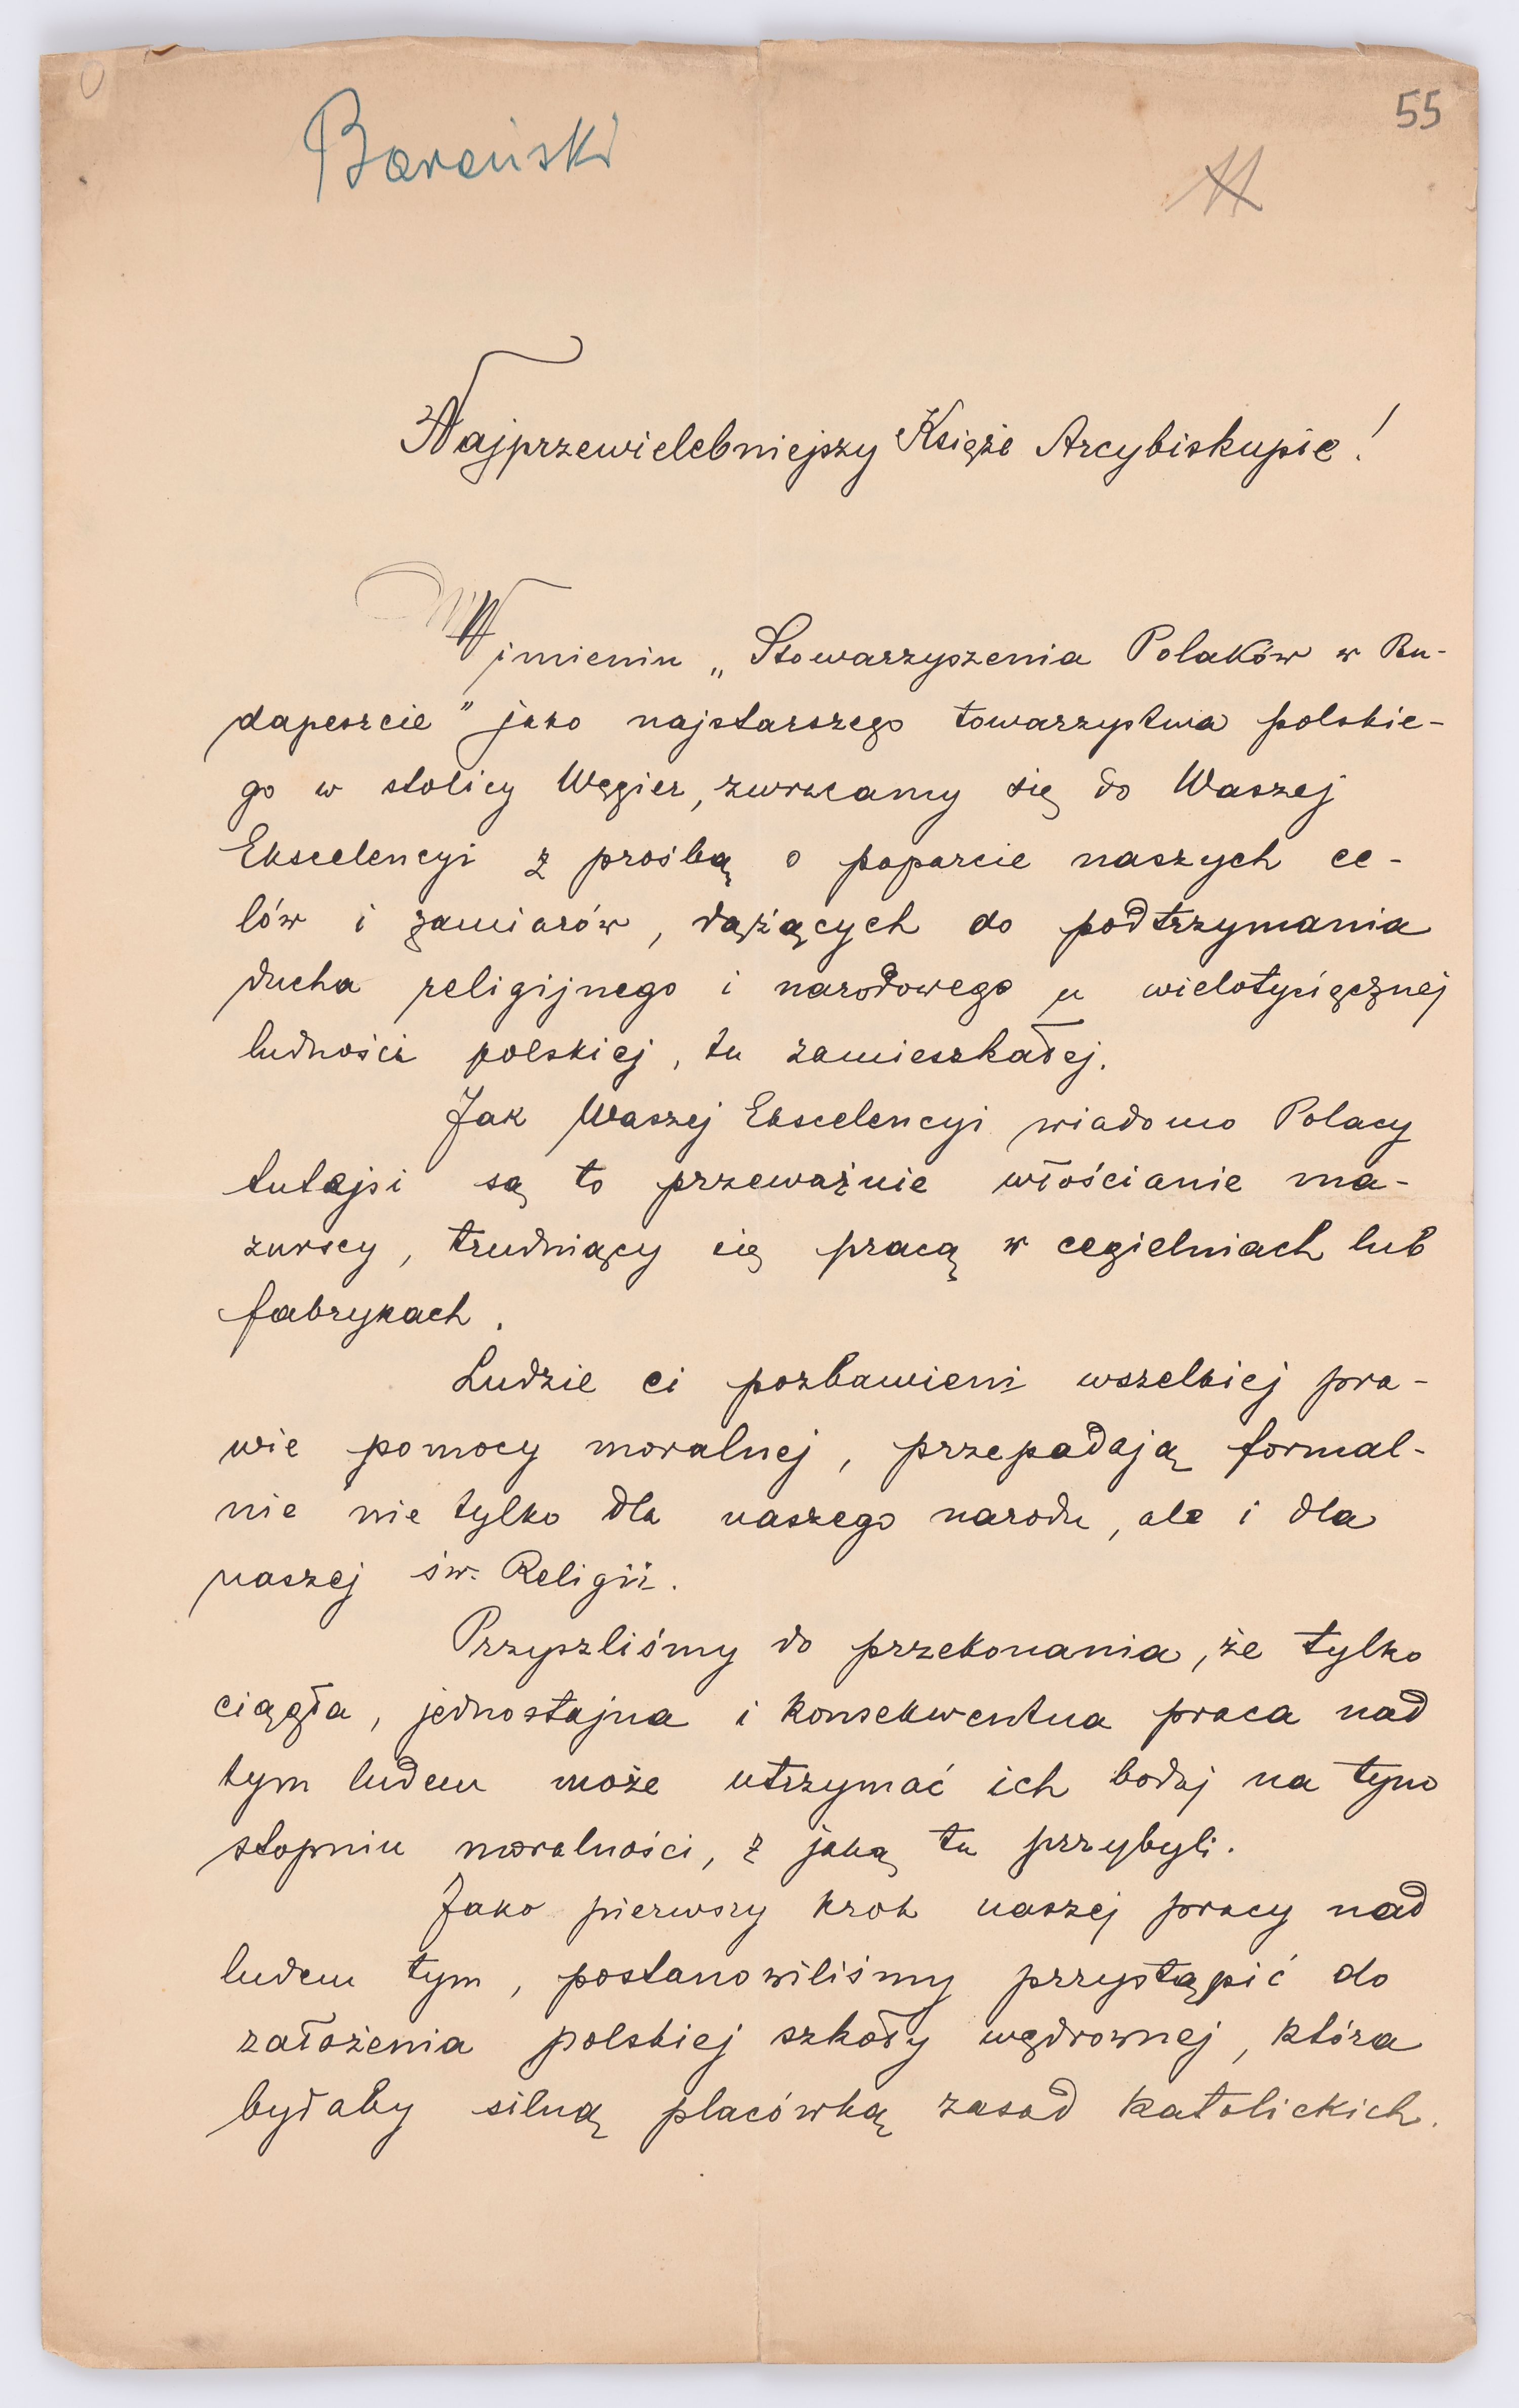 55
Barański
Najprzewielebniejszy Księże Arcybiskupie!
W imieniu „Stowarzyszenia Polaków w Bu-
dapeszcie” jako najstarszego towarzystwa polskie-
go w stolicy Węgier, zwracamy się do Waszej
Ekscelencyi z prośbą o poparcie naszych ce-
lów i zamiarów, dążących do podtrzymania
ducha religijnego i narodowego u wielotysięcznej
ludności polskiej, tu zamieszkałej.
Jak Waszej Ekscelencyi wiadomo Polacy
tutejsi są to przeważnie włościanie ma-
zurscy, trudniący się pracą w cegielniach lub
fabrykach.
Ludzie ci pozbawieni wszelkiej pra-
wie pomocy moralnej, przepadają formal-
nie nie tylko dla naszego narodu, ale i dla
naszej św. Religii.
Przyszliśmy do przekonania, że tylko
ciągła, jednostajna i konsekwentna praca nad
tym ludem może utrzymać ich bodaj na tym
stopniu moralności, z jaką tu przybyli.
Jako pierwszy krok naszej pracy nad
ludem tym, postanowiliśmy przystąpić do
założenia polskiej szkoły wędrownej, która
byłaby silną placówką zasad katolickich.